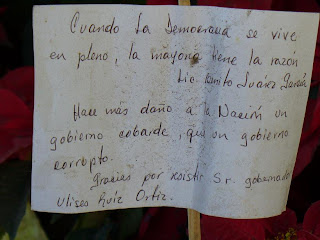 Cuando La Democracia se vive
en pleno, la mayoria tiene la razón
Lic. Benito Juárez García
Hace más daño a la Nación un
gobierno cobarde, que un gobierno
corrupto.
Gracias por existir Sr. gobernador
Ulises Ruiz Ortiz.